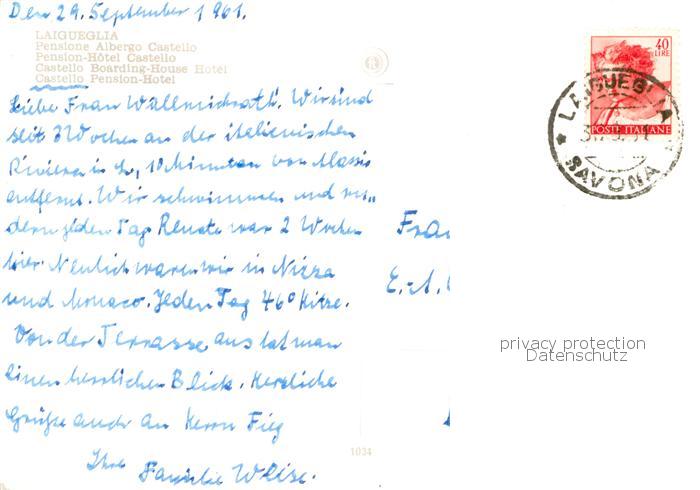 Den 29. September 1961.
LAIGUEGLIA
Pensione Albergo Castello
Pension-Hôtel Castello
Castello Boarding-House Hotel
Castello Pension-Hotel
Liebe Frau Wallmichrath. Wir sind
seit 3 Wochen an der italienischen
Riviera in L, 10 Minuten von Alassio
entfernt. Wir schwimmen und ru„
dern jeden Tag Renate war 2 Wochen
hier. Neulich waren wir in Nizza
und Monaco. Jeden Tag 46° Hitze.
Von der Terrasse aus hat man
einen herrlichen Blick. Herzliche
Grüße auch an Herrn Fieg
Ihre
Familie Weise.
1034
40
LIRE
POSTE ITALIANE
LAIGUEGLIA
SAVONA
Frau
E.-A.
privacy protection
Datenschutz